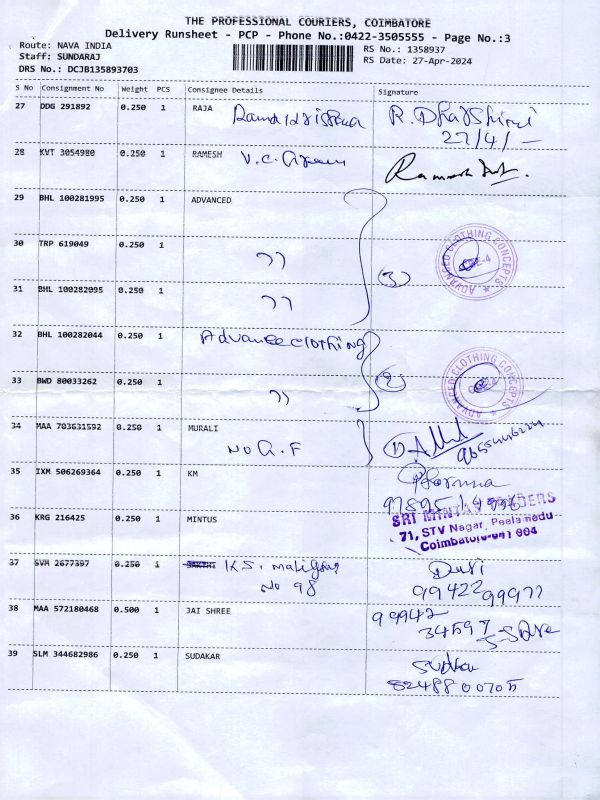 THE PROFESSIONAL COURIERS, COIMBATORE
Delivery Runsheet - PCP - Phone No.:0422-3505555 - Page No.:3
Route: NAVA INDIA
RS No.: 1358937
Staff: SUNDARAJ
RS Date: 27-Apr-2024
DRS No.: DCJB135893703
S No Consignment No Weight PCS Consignee Details Signature
27 DDG 291892 0.250 1 RAJA
27/4/-
28 KVT 3054980 0.250 1 RAMESH V.C.
29 BHL 100281995 0.250 1 ADVANCED
30 TRP 619049 0.250 1 ,, (3)
ADVANCED CLOTHING CONCEPTS
31 BHL 100282095 0.250 1 ,,
32 BHL 100282044 0.250 1 Advance clothing
33 BWD 80033262 0.250 1 ,, (2)
ADVANCED CLOTHING CONCEPTS
34 MAA 703631592 0.250 1 MURALI
No G.F (1)
35 IXM 506269364 0.250 1 KM
36 KRG 216425 0.250 1 MINTUS
SRI MINTAV TRADERS
71, STV Nagar, Peelamedu
Coimbatore-641 004
37 SVM 2677397 0.250 1 SAKTHI K.S.
No 98
9942299977
38 MAA 572180468 0.500 1 JAI SHREE
99942
34597
39 SLM 344682986 0.250 1 SUDAKAR
8248800705